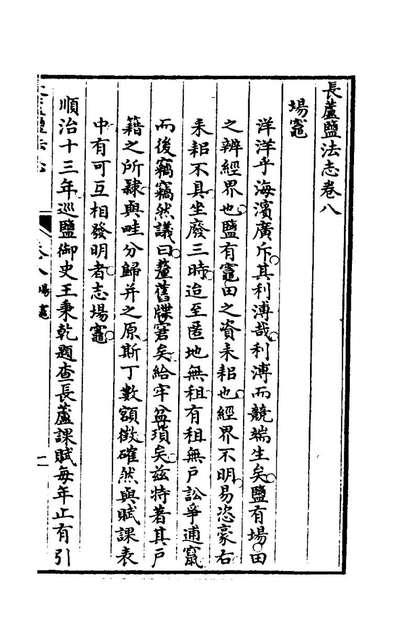 長蘆鹽法志卷八
場竈
洋洋乎海濱廣斥其利溥哉利溥而競端生矣鹽有場田
之辨經界也鹽有竈田之資耒耜也經界不明易恣豪右
耒耜不具坐廢三時迨至匿地無租有租無戶訟爭逋竄
而後竊竊然議曰釐舊牒窘矣給牢盆瑣矣茲特著其戶
籍之所隸與畦分歸并之原斯丁數額徵確然與賦課表
中有可互相發明者志場竈
順治十三年巡鹽御史王秉乾題查長蘆課賦每年止有引
鹽法志
卷八場竈
一